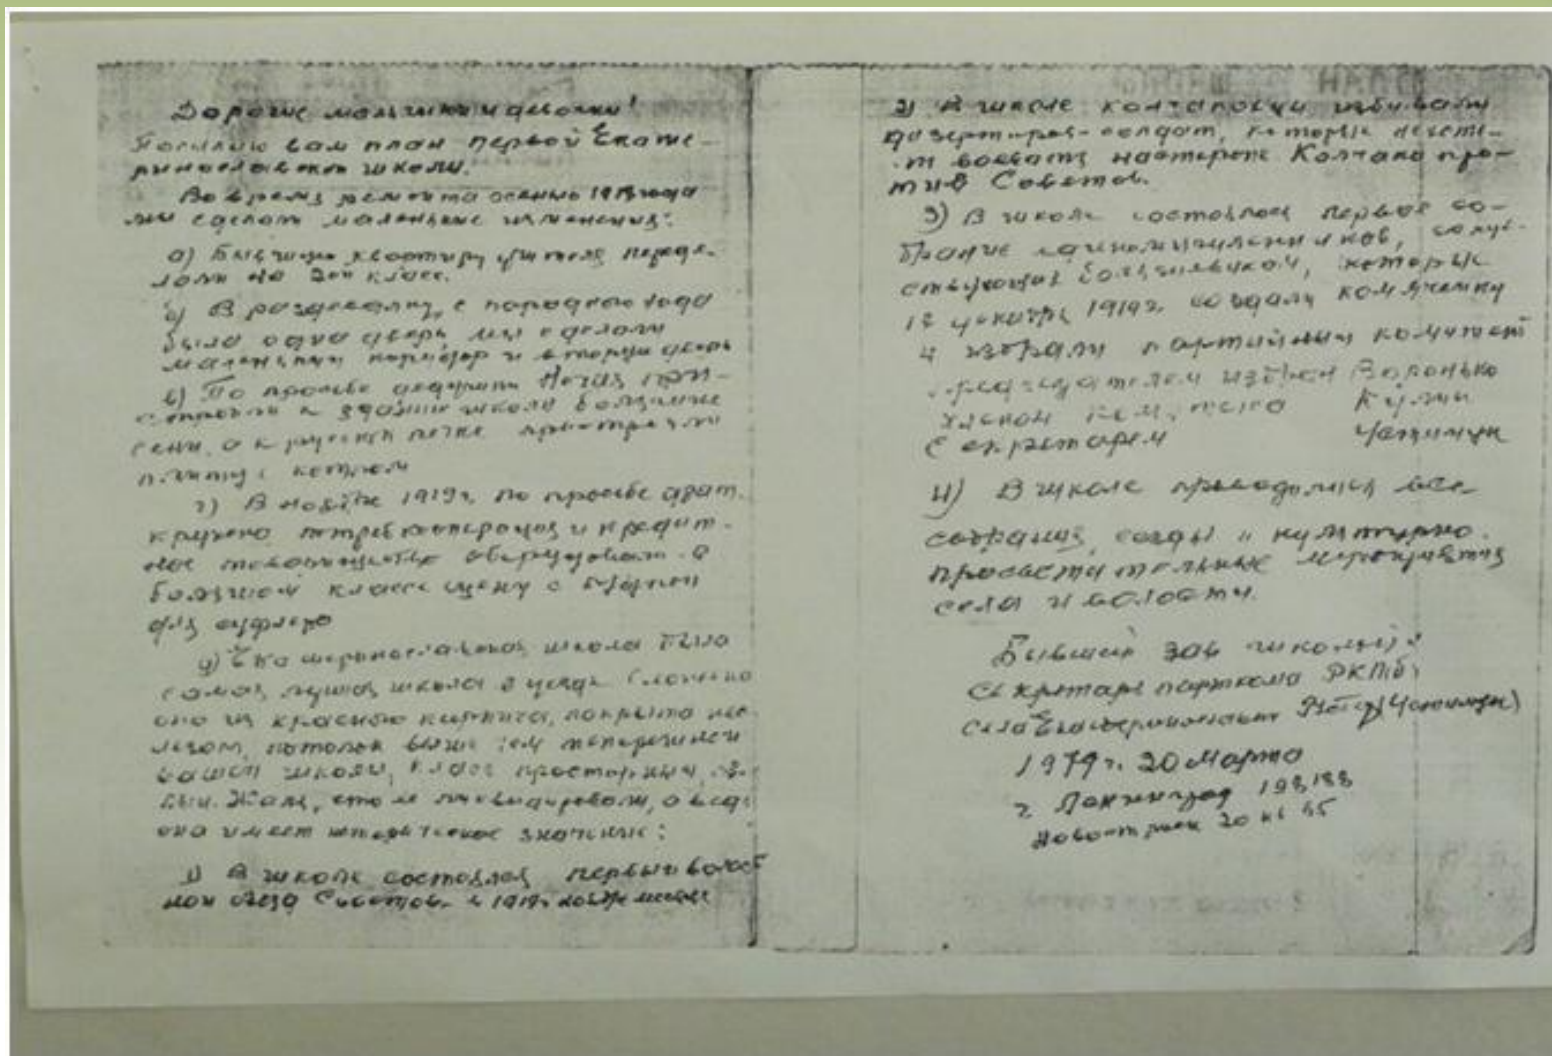 Дорогие мальчики и девочки!
Посылаю вам план первой Екате-
ринославской школы.
Во время ремонта осенью года
мы сделали маленькие изменения:
а) Бывшую квартиру учителя переде-
лали на класс.
б) В раздевалку, с парадного хода
была одна дверь мы сделали
маленький коридор и вторую дверь
в) По просьбе дедушки при-
строили к зданию школы большие
сени, а к русской печке пристроили
плиту с котлом
г) В ноябре 1919г. по просьбе драм.
кружка потребкооперация и кредит-
ное товарищество оборудовали в
большом классе сцену с будкой
для суфлера
д) Екатеринославская школа была
самая лучшая школа в уезде. Сложена
она из красного кирпича, покрыта же-
лезом, потолок выше чем теперешней
вашей школы, класс просторный,
Жаль, что её ликвидировали, а ведь
она имеет историческое значение:
1) В школе состоялся первый волост
ной съезд Советов в 1919г. ноябре месяце
2) В школе колчаковцы избивали
дезертиров-солдат, которые не хоте-
ли воевать на стороне Колчака про-
тив Советов.
3) В школе состоялось первое со-
брание единомышленников, сочув-
ствующих большевикам, которые
12 декабря 1919г. создали комячейку
и избрали партийный комитет
председателем избран Воронько
членом комитета
Секретарем Чепинчук
4) В школе проводились все
собрания, съезды и культурно-
просветительные мероприятия
села и волости.
Бывший зав школой и
секретарь парткома РКП(б)
села Екатеринославки
1979г. 20 Марта
г Ленинград 198188
Новостроек 20 кв 55